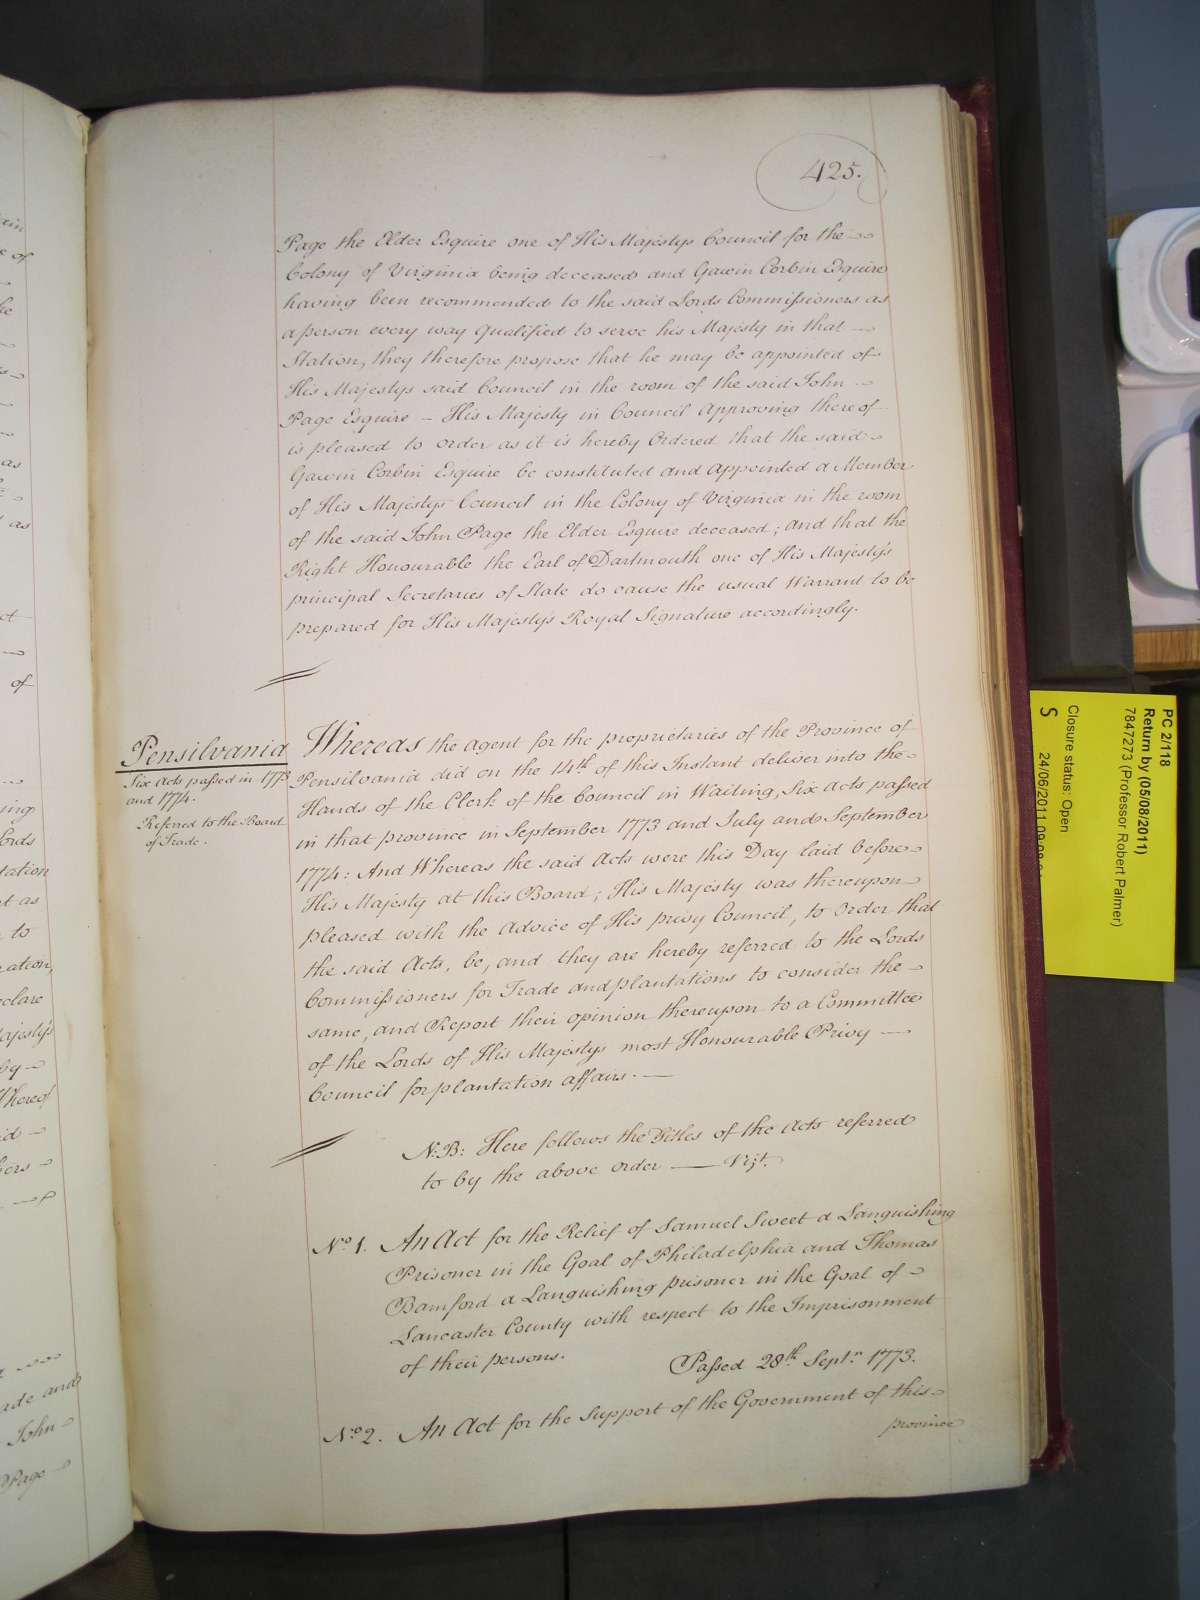 425.
Page the Elder Esquire one of His Majestys Council for the
Colony of Virginia being deceased and Gawin Corbin Esquire
having been recommended to the said Lords Commissioners as
a person every way qualified to serve his Majesty in that
Station, they therefore propose that he may be appointed of
His Majestys said Council in the room of the said John
Page Esquire — His Majesty in Council Approving thereof
is pleased to order as it is hereby Ordered that the said
Gawin Corbin Esquire be constituted and appointed a Member
of His Majestys Council in the Colony of Virginia in the room
of the said John Page the Elder Esquire deceased; and that the
Right Honourable the Earl of Dartmouth one of His Majesty's
principal Secretaries of State do cause the usual Warrant to be
prepared for His Majesty's Royal Signature accordingly.
Pensilvania
Six Acts passed in 1773
and 1774.
Referred to the Board
of Trade.
Whereas the agent for the proprietaries of the Province of
Pensilvania did on the 14th of this Instant deliver into the
Hands of the Clerk of the Council in Waiting, Six Acts passed
in that province in September 1773 and July and September
1774: And Whereas the said Acts were this Day laid before
His Majesty at this Board; His Majesty was thereupon
pleased with the Advice of His privy Council, to Order that
the said Acts, be, and they are hereby referred to the Lords
Commissioners for Trade and plantations to consider the
same, and Report their opinion thereupon to a Committee
of the Lords of His Majestys most Honourable Privy —
Council for plantation affairs. —
N:B: Here follows the Titles of the Acts referred
to by the above order — Vizt.
No. 1. An Act for the Relief of Samuel Sweet a Languishing
Prisoner in the Goal of Philadelphia and Thomas
Bamford a Languishing prisoner in the Goal of
Lancaster County with respect to the Imprisonment
of their persons.
Passed 28th Septr. 1773.
No. 2. An Act for the Support of the Government of this
province
PC 2/118
Return by (05/08/2011)
7847273 (Professor Robert Palmer)
Closure status: Open
S 24/06/2011